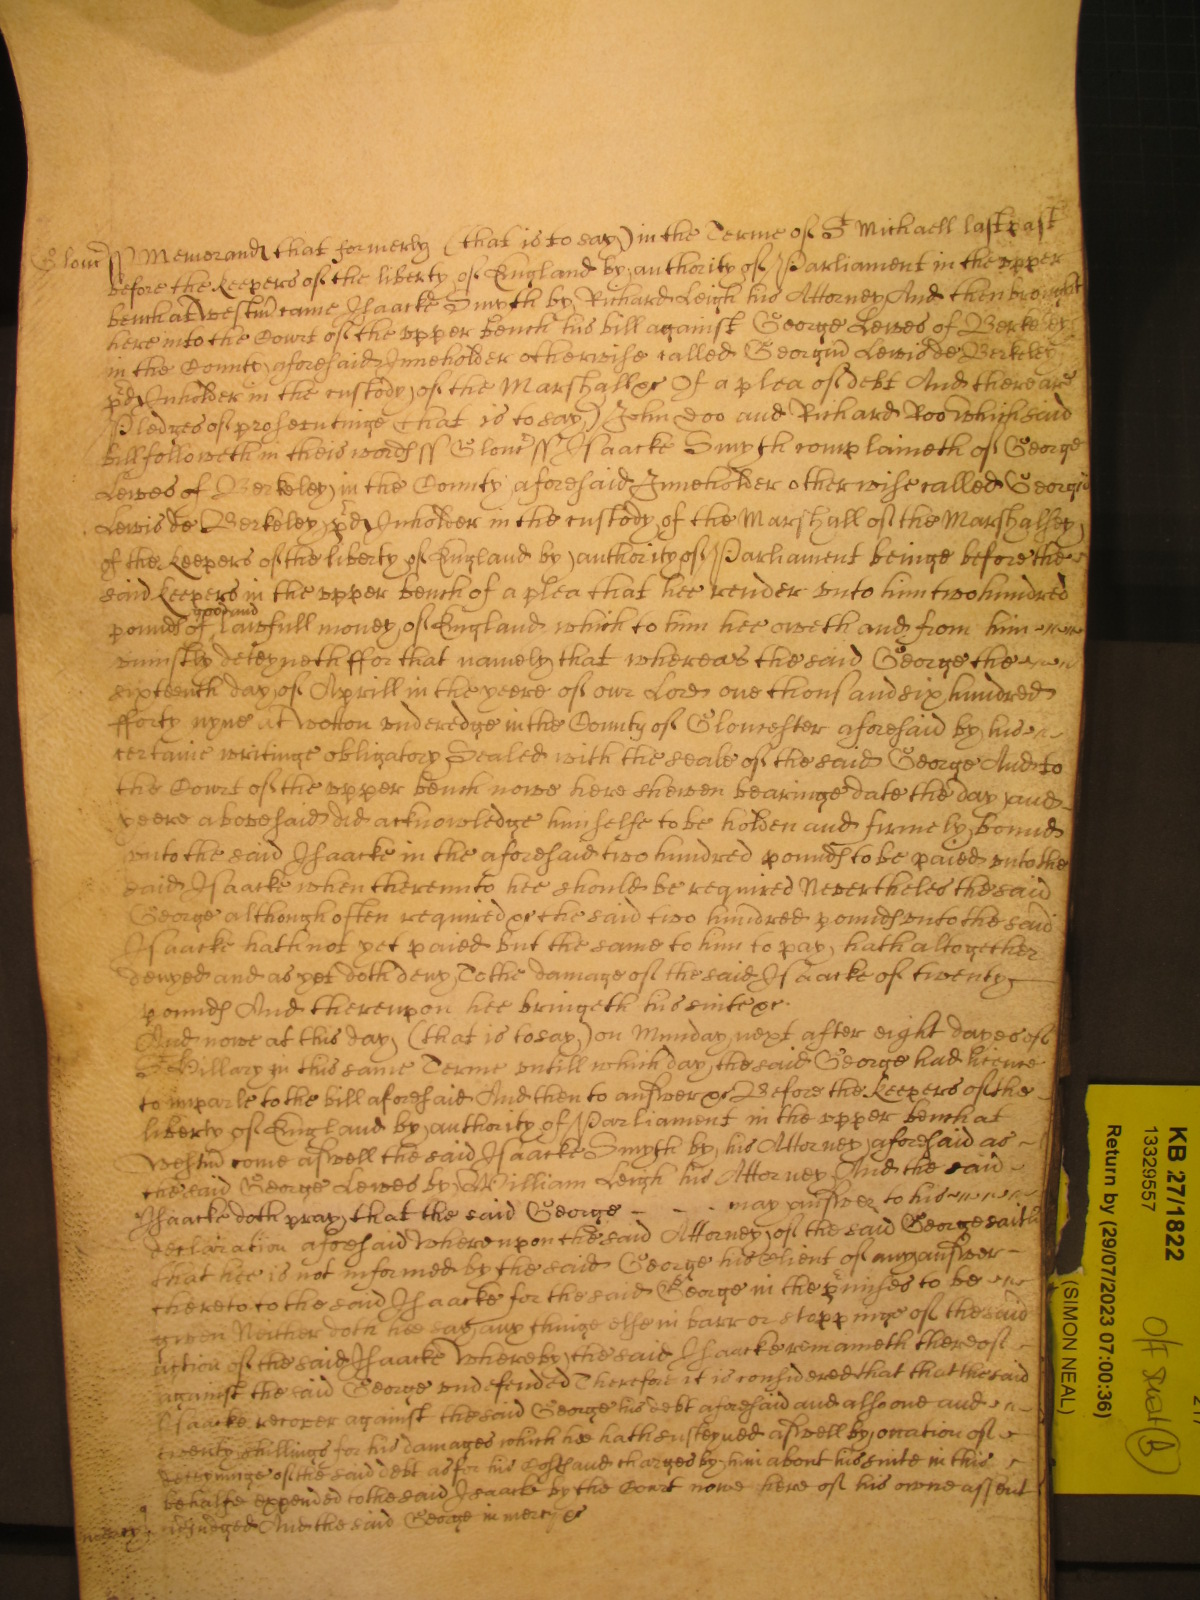 Glouc ss Memorand that formerly (that is to say) in the Terme of St Michaell last past
before the keepers of the liberty of England by authority of Parliament in the upper
bench at Westm came Isaacke Smyth by Richard Leigh his Attorney And then brought
here into the Court of the upper bench his bill against George Lewes of Berkeley
in the County aforesaid Inneholder otherwise called Georgiu Lewis de Berkeley
pd Inholder in the custody of the Marshall &c Of a plea of debt And there are
Pledges of prosecutinge (that is to say) John Doo and Richard Roo Which said
bill followeth in theis words ss Glouc ss Isaacke Smyth complaineth of George
Lewes of Berkeley in the County aforesaid Inneholder otherwise called Georgiu
Lewis de Berkeley pd Inholder in the custody of the Marshall of the Marshalsey
of the keepers of the liberty of England by authority of Parliament beinge before the
said keepers in the upper bench of a plea that hee render unto him two hundred
pounds of good and lawfull money of England which to him hee oweth and from him
uniustly deteyneth ffor that namely that whereas the said George the
sixteenth day of Aprill in the yeere of our Lord one thousand six hundred
fforty nyne at Wotton underedge in the County of Gloucester aforesaid by his
certaine writinge obligatory Sealed with the seale of the said George And to
the Court of the upper bench nowe here shewen bearinge date the day and
yeere abovesaid did acknowledge himselfe to be holden and firmely bound
unto the said Isaacke in the aforesaid two hundred pounds to be paied unto the
said Isaacke when thereunto hee should be required Nevertheles the said
George although often required &c the said two hundred pounds unto the said
Isaacke hath not yet paied but the same to him to pay hath altogether
denyed and as yet doth deny To the damage of the said Isaacke of twenty
pounds And thereupon hee bringeth his suite &c
And nowe at this day (that is to say) on Munday next after eight dayes of
St Hillary in this same Terme untill which day the said George had licence
to imparle to the bill aforesaid And then to answer &c Before the keepers of the
liberty of England by authority of Parliament in the upper bench at
Westm come aswell the said Isaacke Smyth by his Attorney aforesaid as
the said George Lewes by William Leigh his Attorney And the said
Isaacke doth pray that the said George may answer to his
declaration aforesaid Whereupon the said Attorney of the said George saith
that hee is not informed by the said George his Client of any answer
thereto to the said Isaacke for the said George in the pmises to be
given Neither doth hee say any thinge else in barr or stoppinge of the said
action of the said Isaacke Whereby the said Isaacke remaineth thereof
against the said George undefended Therefore it is considered that that the said
Isaacke recover against the said George his debt aforesaid and also one and
twenty shillings for his damages which hee hath susteyned aswell by occation of
deteyninge of the said debt as for his Costs and charges by him about his suite in this
behalfe expended to the said Isaacke by the Court nowe here of his owne assent
adiudged And the said George in mercy &c
mercy
KB 27/1822
13329557
Return by (29/07/2023 07:00:36)
(SIMON NEAL)